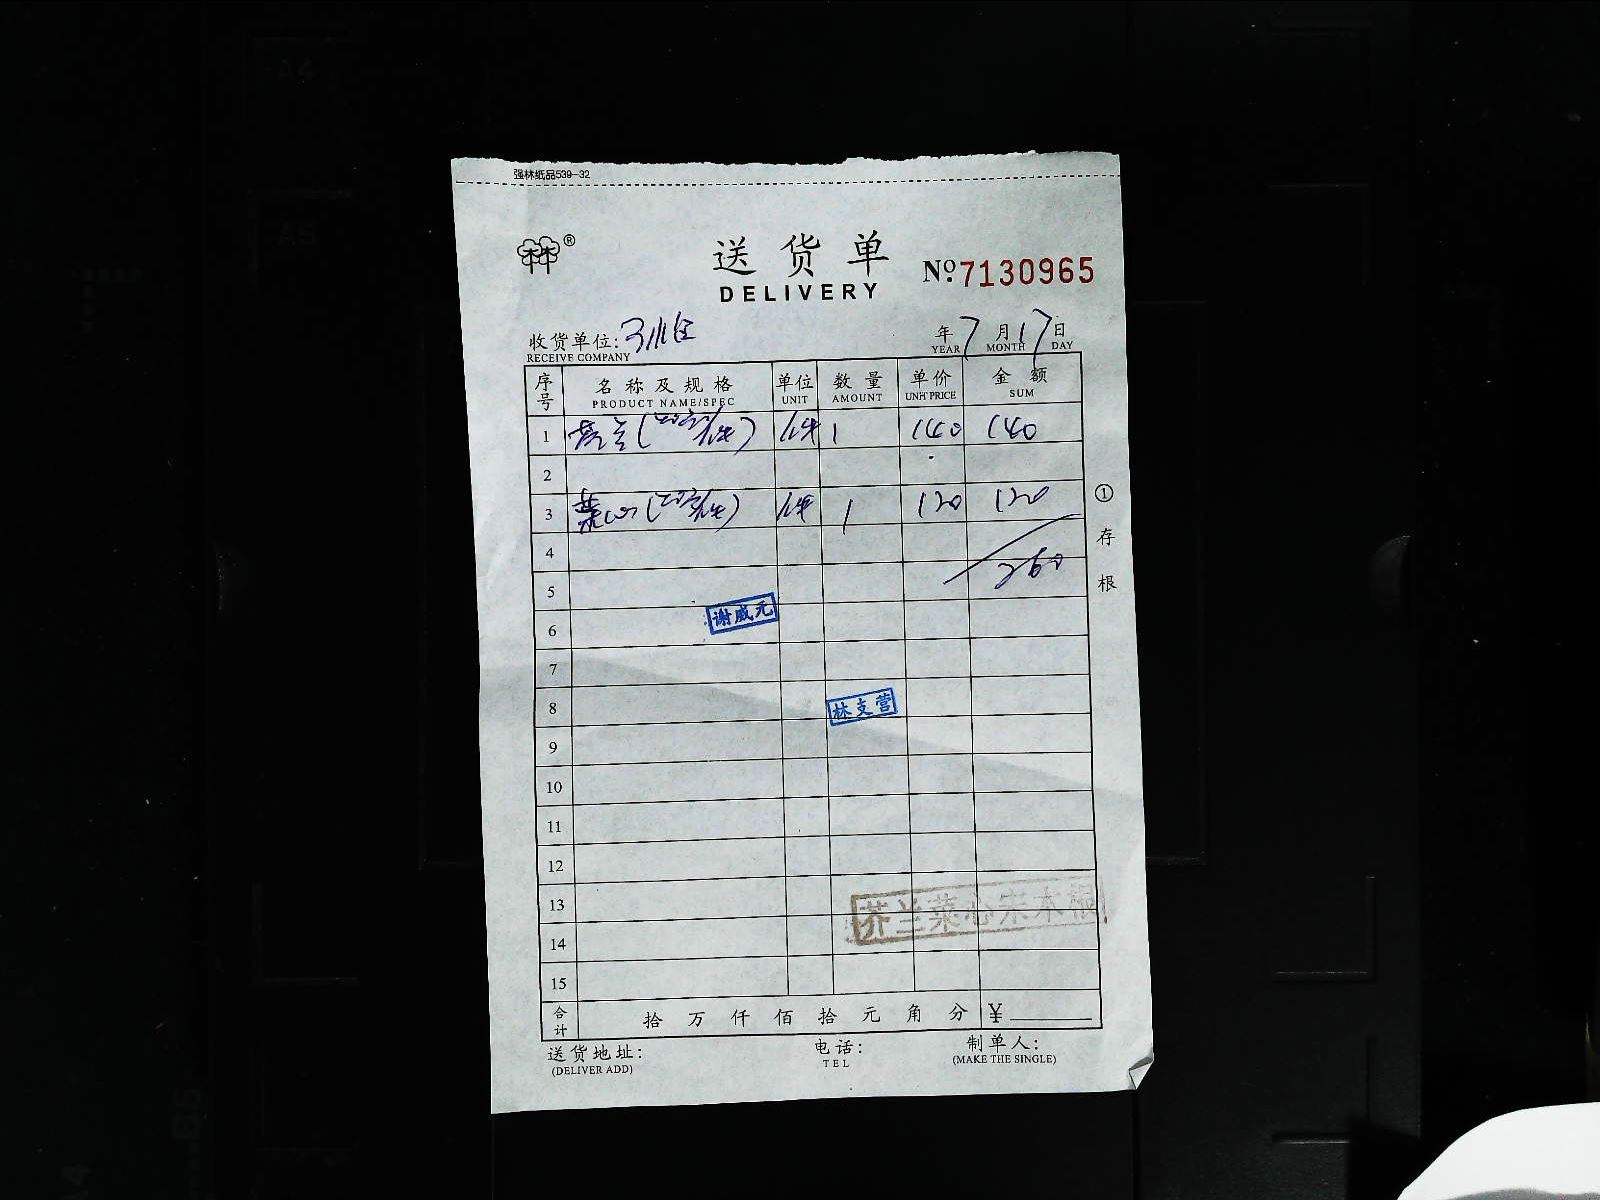 强林纸品539-32
®
送货单
DELIVERY
Nº 7130965
收货单位:
RECEIVE COMPANY
年 7 月 17 日
YEAR MONTH DAY
序号 名称及规格 单位 数量 单价 金额
PRODUCT NAME/SPEC UNIT AMOUNT UNIT PRICE SUM
1 芥兰( 件 1 140 140
2
3 菜心( 件 1 120 120
4
260
5
谢威元
6
7
林支营
8
9
10
11
12
芥兰菜心宋木根
13
14
15
合计 拾 万 仟 佰 拾 元 角 分 ¥
送货地址: 电话: 制单人:
(DELIVER ADD) TEL (MAKE THE SINGLE)
① 存根